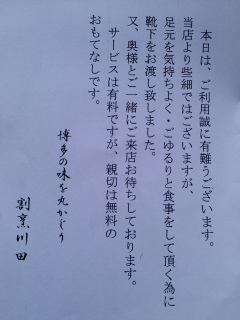 本日は、ご利用誠に有難うございます。
当店より些細ではございますが、
足元を気持ちよく・ごゆるりと食事をして頂く為に
靴下をお渡し致しました。
又、奥様とご一緒にご来店お待ちしております。
サービスは有料ですが、親切は無料の
おもてなしです。
博多の味を丸かじり
割烹川田